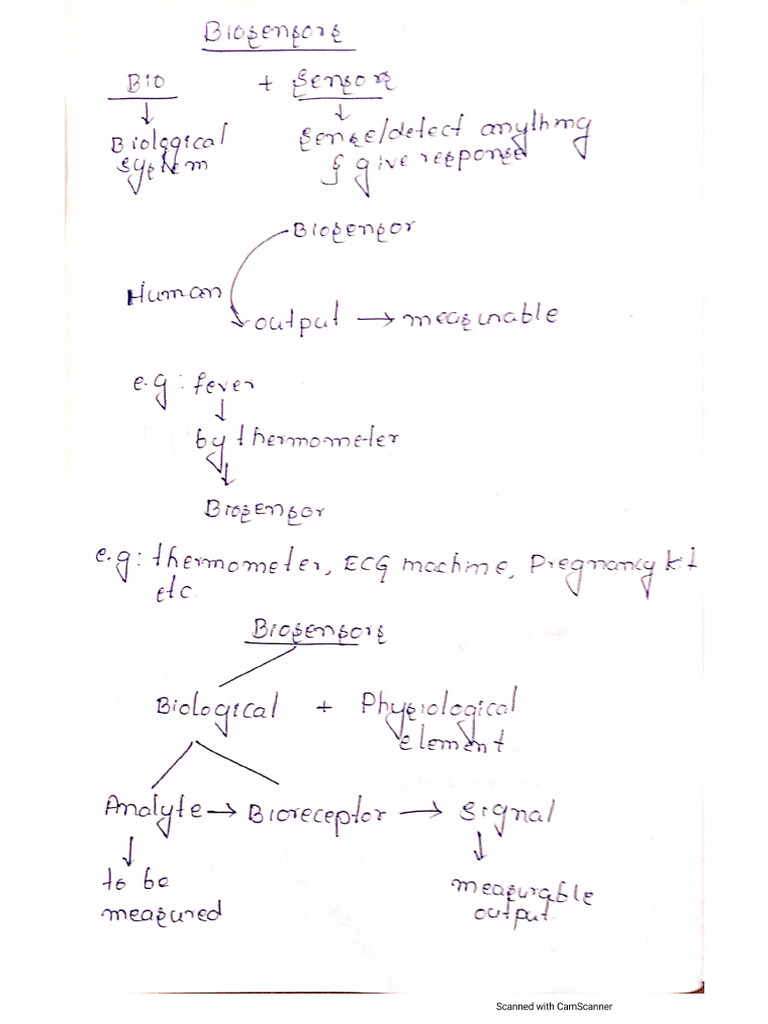 Biosensors
Bio + Sensor
↓ ↓
Biological Sense/detect anything
system & give response
Biosensor
Human
output → measurable
e.g: fever
↓
by thermometer
↓
Biosensor
e.g: thermometer, ECG machine, Pregnancy kit
etc.
Biosensors
Biological + Physiological
element
Analyte → Bioreceptor → Signal
↓ ↓
to be measurable
measured output
Scanned with CamScanner